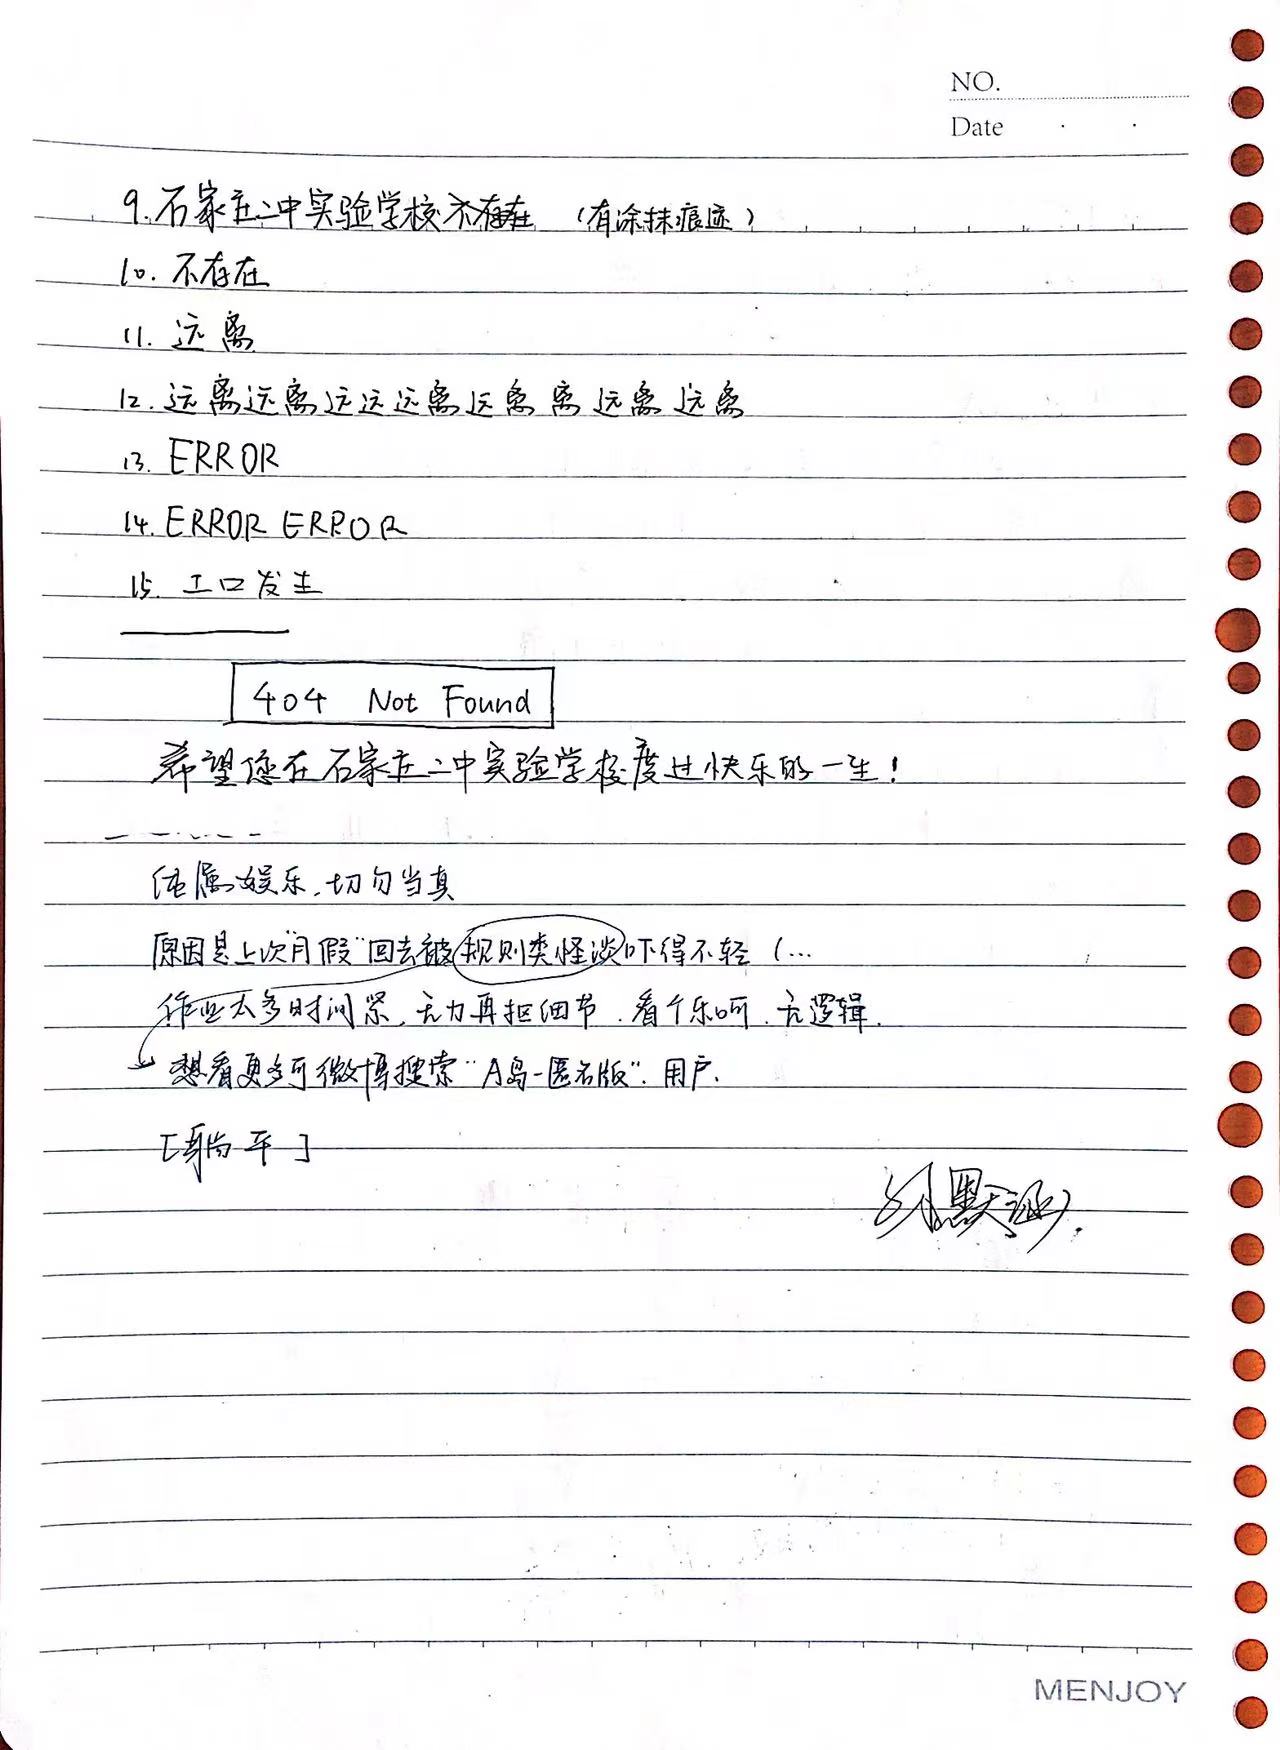 NO.
Date
9. 石家庄二中实验学校不存在 （有涂抹痕迹）
10. 不存在
11. 远离
12. 远离远离远远远离远离离远离远离
13. ERROR
14. ERROR ERROR
15. 工口发生
404 Not Found
希望您在石家庄二中实验学校度过快乐的一生！
纯属娱乐，切勿当真
原因是上次"月假"回去被规则类怪谈吓得不轻（…
作业太多时间紧，无力再抠细节．看个乐呵．无逻辑．
想看更多可微博搜索"A岛-匿名版"．用户．
[躺平]
默涵
MENJOY